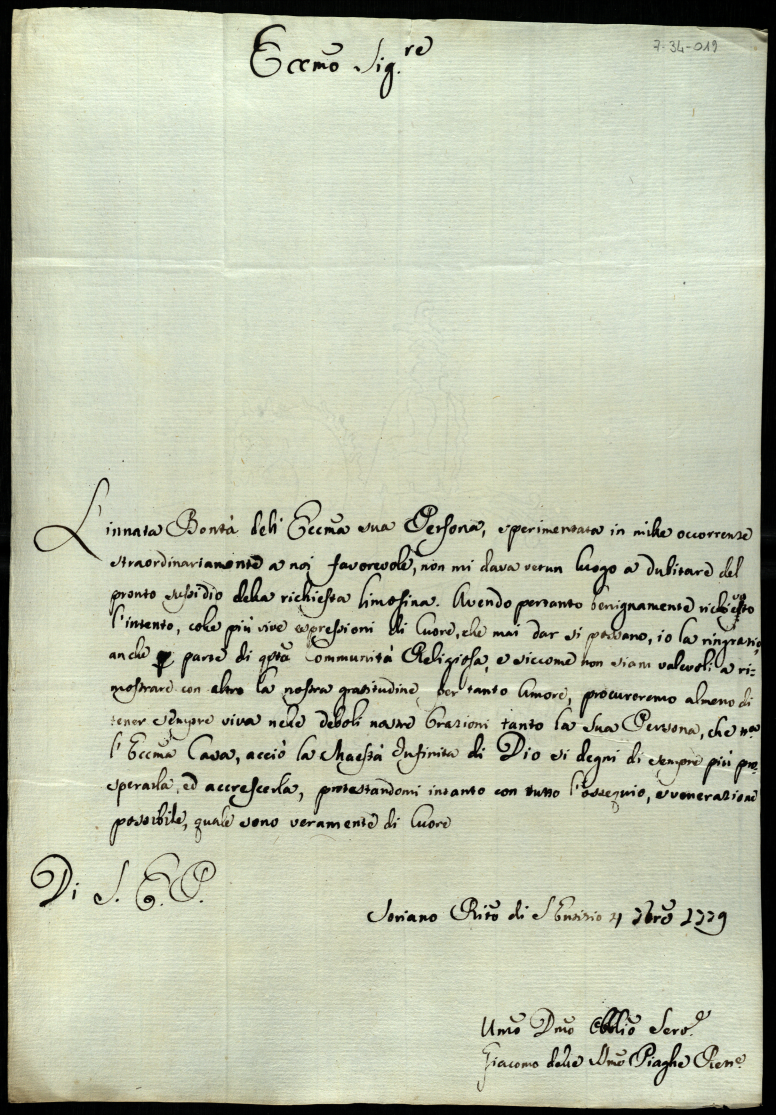 7-34-019
Eccmo Sig.re
L'innata Bontà dell'Eccma sua Persona, sperimentata in mille occorrenze
straordinariamente a noi favorevole, non mi dava verun luogo a dubitare del
pronto susidio della richiesta limosina. Avendo pertanto benignamente
l'intento, colle più vive espressioni di Cuore, che mai dar si possano, io la ringrazio,
anche p parte di qsta Communità Religiosa, e siccome non siam valevoli a ri-
mostrare con altro la nostra gratitudine per tanto Amore, procureremo almeno di
tener sempre viva nelle deboli nostre Orazioni tanto la sua Persona, che
l'Eccma Casa, acciò la Maestà Infinita di Dio si degni di sempre più pro-
sperarla, ed accrescerla, protestandomi intanto con tutto l'ossequio, e venerazione
possibile, quale sono veramente di Cuore
Di S. E. P.
Soriano Rito di S Eutizio 4 7bre 1779
Umo Dmo Obblio Serv.
Giacomo delle Piaghe